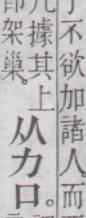 不欲加諸人。而
據其上从力口。
架巢。